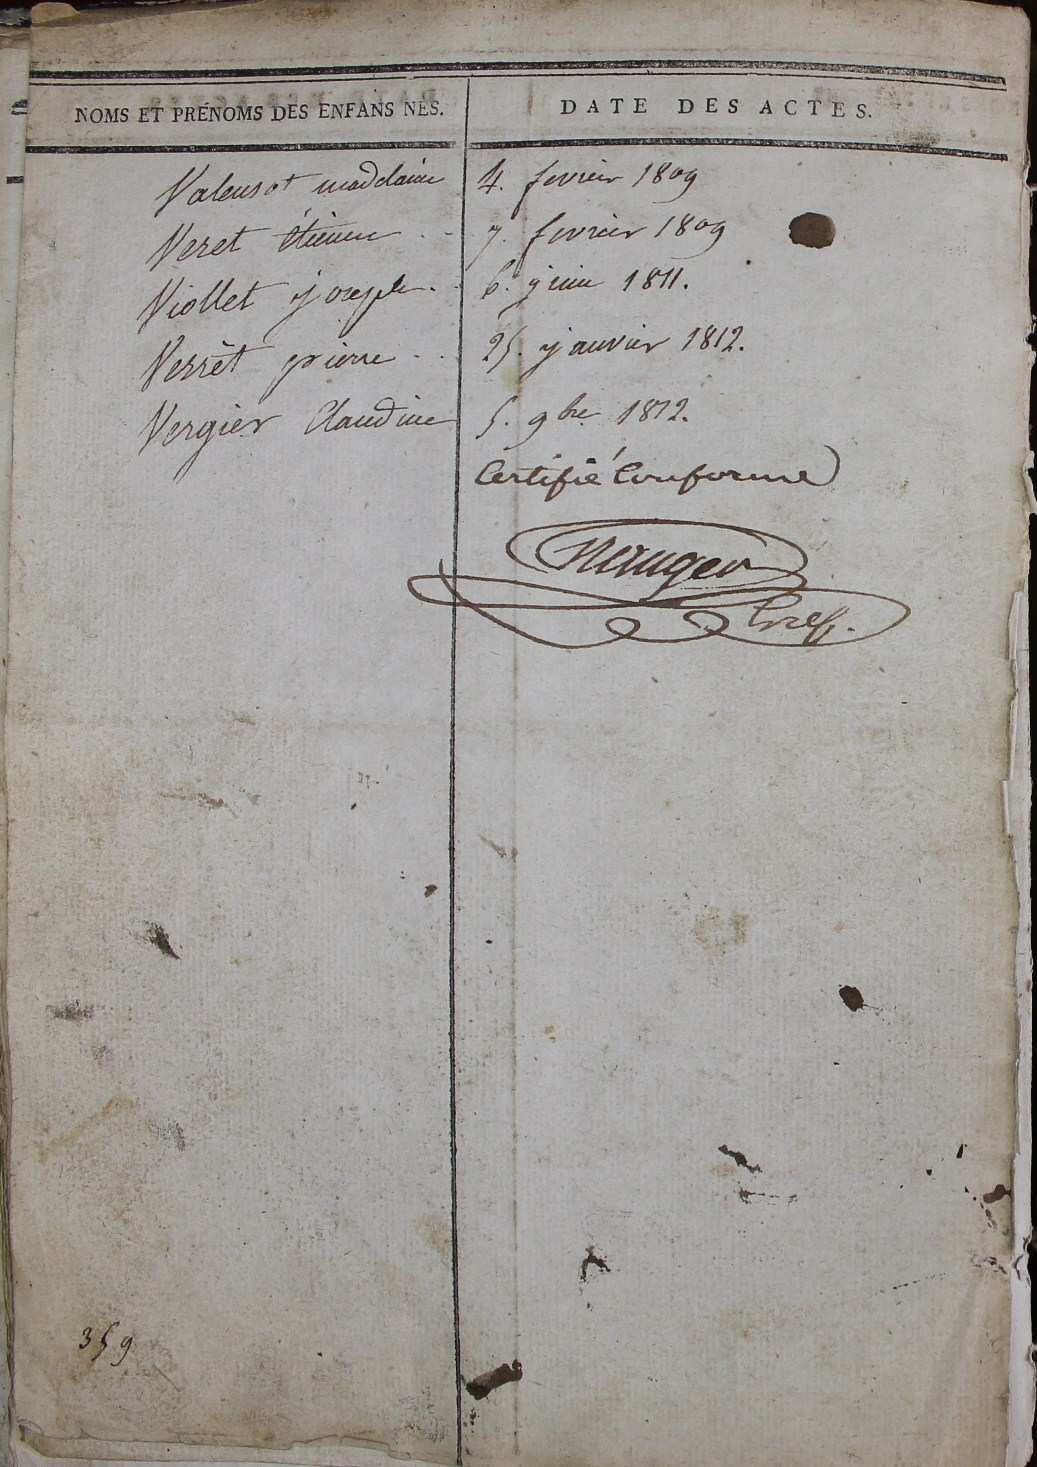 NOMS ET PRÉNOMS DES ENFANS NÉS. DATE DES ACTES.
Valensot madelaine 4. fevrier 1809
Veret étienne 7. fevrier 1809
Viollet joseph 6. juin 1811.
Verrêt pierre 25. janvier 1812.
Vergier Claudine 5. 9bre 1812.
Certifié Conforme
Greff.
359